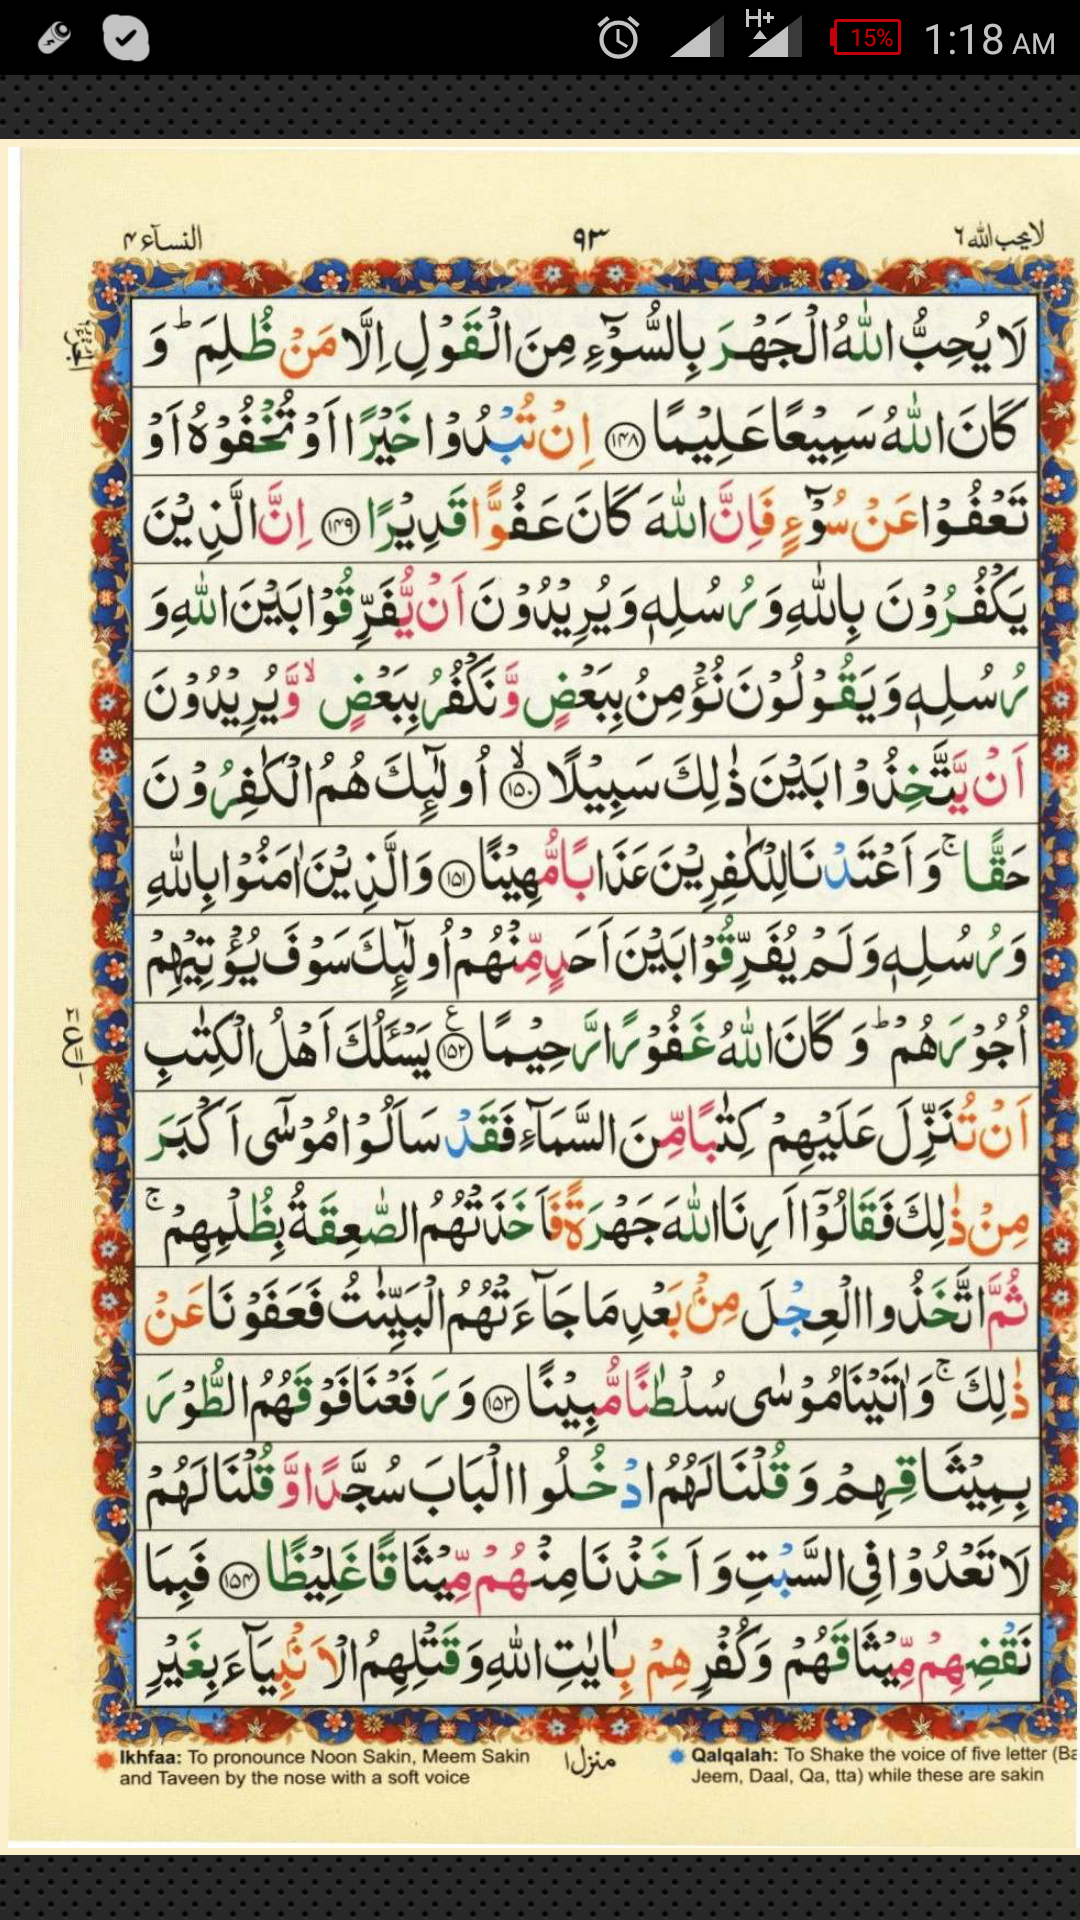 H+
15%
1:18 AM
لا يحب الله ٦
٩٣
النسآء ٤
لَا يُحِبُّ اللّٰهُ الْجَهْرَ بِالسُّوْٓءِ مِنَ الْقَوْلِ اِلَّا مَنْ ظُلِمَ ؕ وَ
كَانَ اللّٰهُ سَمِيْعًا عَلِيْمًا ﴿۱۴۸﴾ اِنْ تُبْدُوْا خَيْرًا اَوْ تُخْفُوْهُ اَوْ
تَعْفُوْا عَنْ سُوْٓءٍ فَاِنَّ اللّٰهَ كَانَ عَفُوًّا قَدِيْرًا ﴿۱۴۹﴾ اِنَّ الَّذِيْنَ
يَكْفُرُوْنَ بِاللّٰهِ وَ رُسُلِهٖ وَ يُرِيْدُوْنَ اَنْ يُّفَرِّقُوْا بَيْنَ اللّٰهِ وَ
رُسُلِهٖ وَ يَقُوْلُوْنَ نُؤْمِنُ بِبَعْضٍ وَّ نَكْفُرُ بِبَعْضٍ ۙ وَّ يُرِيْدُوْنَ
اَنْ يَّتَّخِذُوْا بَيْنَ ذٰلِكَ سَبِيْلًا ﴿۱۵۰﴾ ۙ اُولٰٓئِكَ هُمُ الْكٰفِرُوْنَ
حَقًّا ۚ وَ اَعْتَدْنَا لِلْكٰفِرِيْنَ عَذَابًا مُّهِيْنًا ﴿۱۵۱﴾ وَالَّذِيْنَ اٰمَنُوْا بِاللّٰهِ
وَ رُسُلِهٖ وَ لَمْ يُفَرِّقُوْا بَيْنَ اَحَدٍ مِّنْهُمْ اُولٰٓئِكَ سَوْفَ يُؤْتِيْهِمْ
اُجُوْرَهُمْ ؕ وَ كَانَ اللّٰهُ غَفُوْرًا رَّحِيْمًا ﴿۱۵۲﴾ ع يَسْـَٔلُكَ اَهْلُ الْكِتٰبِ
اَنْ تُنَزِّلَ عَلَيْهِمْ كِتٰبًا مِّنَ السَّمَآءِ فَقَدْ سَاَلُوْا مُوْسٰٓى اَكْبَرَ
مِنْ ذٰلِكَ فَقَالُوْٓا اَرِنَا اللّٰهَ جَهْرَةً فَاَخَذَتْهُمُ الصّٰعِقَةُ بِظُلْمِهِمْ ۚ
ثُمَّ اتَّخَذُوا الْعِجْلَ مِنْۢ بَعْدِ مَا جَآءَتْهُمُ الْبَيِّنٰتُ فَعَفَوْنَا عَنْ
ذٰلِكَ ۚ وَ اٰتَيْنَا مُوْسٰى سُلْطٰنًا مُّبِيْنًا ﴿۱۵۳﴾ وَ رَفَعْنَا فَوْقَهُمُ الطُّوْرَ
بِمِيْثَاقِهِمْ وَ قُلْنَا لَهُمُ ادْخُلُوا الْبَابَ سُجَّدًا وَّ قُلْنَا لَهُمْ
لَا تَعْدُوْا فِى السَّبْتِ وَ اَخَذْنَا مِنْهُمْ مِّيْثَاقًا غَلِيْظًا ﴿۱۵۴﴾ فَبِمَا
نَقْضِهِمْ مِّيْثَاقَهُمْ وَ كُفْرِهِمْ بِاٰيٰتِ اللّٰهِ وَ قَتْلِهِمُ الْاَنْۢبِيَآءَ بِغَيْرِ
Ikhfaa: To pronounce Noon Sakin, Meem Sakin
and Taveen by the nose with a soft voice
منزل ۱
Qalqalah: To Shake the voice of five letter (Ba
Jeem, Daal, Qa, tta) while these are sakin